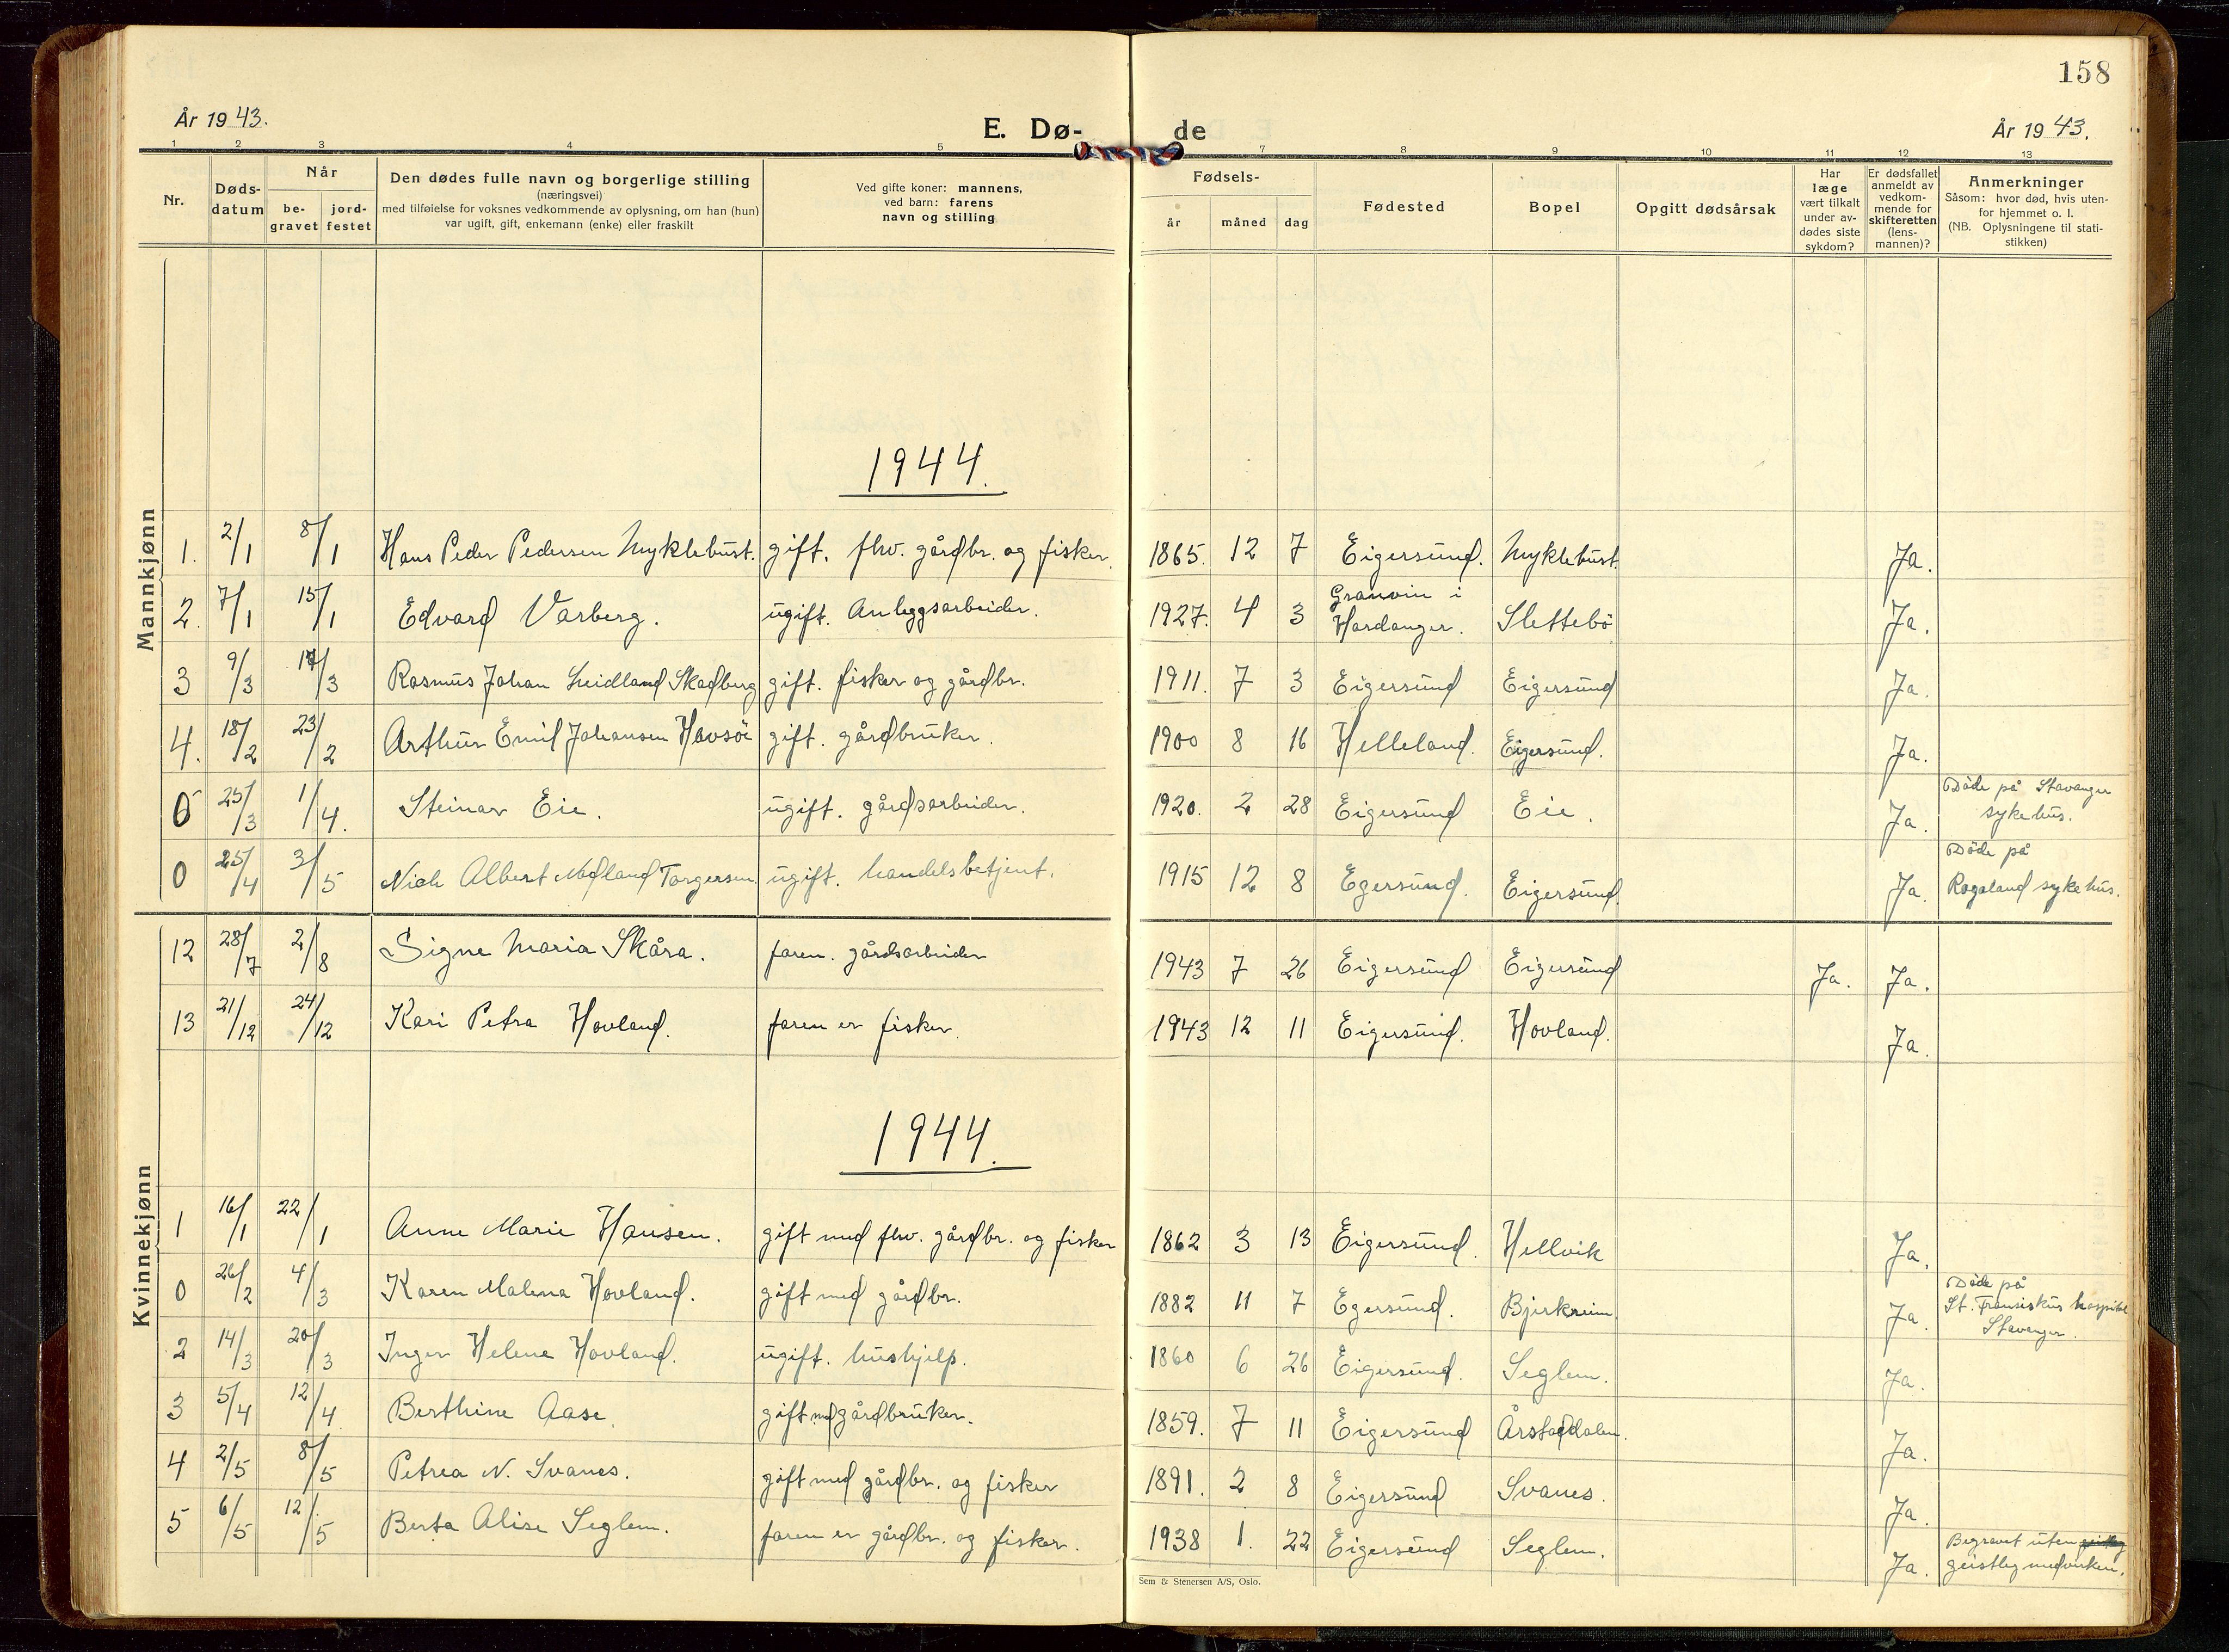 158
År 1943.
E. Dø-
de
År 1943.
1 2 3 4 5
7 8 9 10 11 12 13
Nr.
Døds-
datum
Når
be-
gravet
jord-
festet
Den dødes fulle navn og borgerlige stilling
(næringsvei)
med tilføielse for voksnes vedkommende av oplysning, om han (hun)
var ugift, gift, enkemann (enke) eller fraskilt
Ved gifte koner: mannens,
ved barn: farens
navn og stilling
Fødsels-
år måned dag
Fødested
Bopel
Opgitt dødsårsak
Har
læge
vært tilkalt
under av-
dødes siste
sykdom?
Er dødsfallet
anmeldt av
vedkom-
mende for
skifteretten
(lens-
mannen)?
Anmerkninger
Såsom: hvor død, hvis uten-
for hjemmet o. l.
(NB. Oplysningene til stati-
stikken)
Mannkjønn
1944.
1. 2/1 8/1 Hans Peder Pedersen Myklebust. gift. fhv. gårdbr. og fisker. 1865. 12 7 Eigersund. Myklebust. Ja.
2. 7/1 15/1 Edvard Varberg. ugift. Anleggsarbeider. 1927. 4 3 Granvin i
Hardanger. Slettebö Ja.
3 9/3 /3 Rasmus Johan Leidland Skadberg gift. fisker og gårdbr. 1911. 7 3 Eigersund Eigersund Ja.
4. 18/2 23/2 Arthur Emil Johansen Havsöe gift. gårdbruker. 1900 8 16 Helleland. Eigersund. Ja.
0 25/3 1/4. Steinar Eie. ugift. gårdsarbeider. 1920. 2 28 Eigersund Eie. Ja. Döde på Stavanger
sykehus.
0 25/4 3/5 Albert Torgersen ugift. handelsbetjent. 1915 12 8 Egersund. Eigersund. Ja. Döde på
Rogaland sykehus.
Kvinnekjønn
12 28/7 2/8 Signe Maria Skåra. faren. gårdsarbeider 1943 7 26 Eigersund Eigersund Ja. Ja.
13 21/12 24/12 Kari Petra Hovland. faren er fisker. 1943 12 11 Eigersund. Hovland. Ja.
1944.
1 16/1 22/1 Anne Marie Hansen. gift med fhv. gårdbr. og fisker 1862 3 13 Eigersund. Hellvik Ja.
0 26/2 4/3 Karen Malena Hovland. gift med gårdbr. 1882 11 7 Egersund. Bjerkreim. Ja. Döde på
St. Fransiskus hospital
Stavanger.
2 14/3 20/3 Inger Helene Hovland. ugift. hushjelp. 1860 6 26 Eigersund. Seglem. Ja.
3 5/4 12/4 Berthine Aase. gift med gårdbruker. 1859. 7 11 Eigersund Årstaddalen. Ja.
4 2/5 8/5 Petrea N. Svanes. gift med gårdbr. og fisker 1891. 2 8 Eigersund Svanes. Ja.
5 6/5 12/5 Berta Alise Seglem. faren er gårdbr. og fisker. 1938 1. 22 Eigersund Seglem. Ja. Begravet uten
geistleg medvirken.
Sem & Stenersen A/S, Oslo.